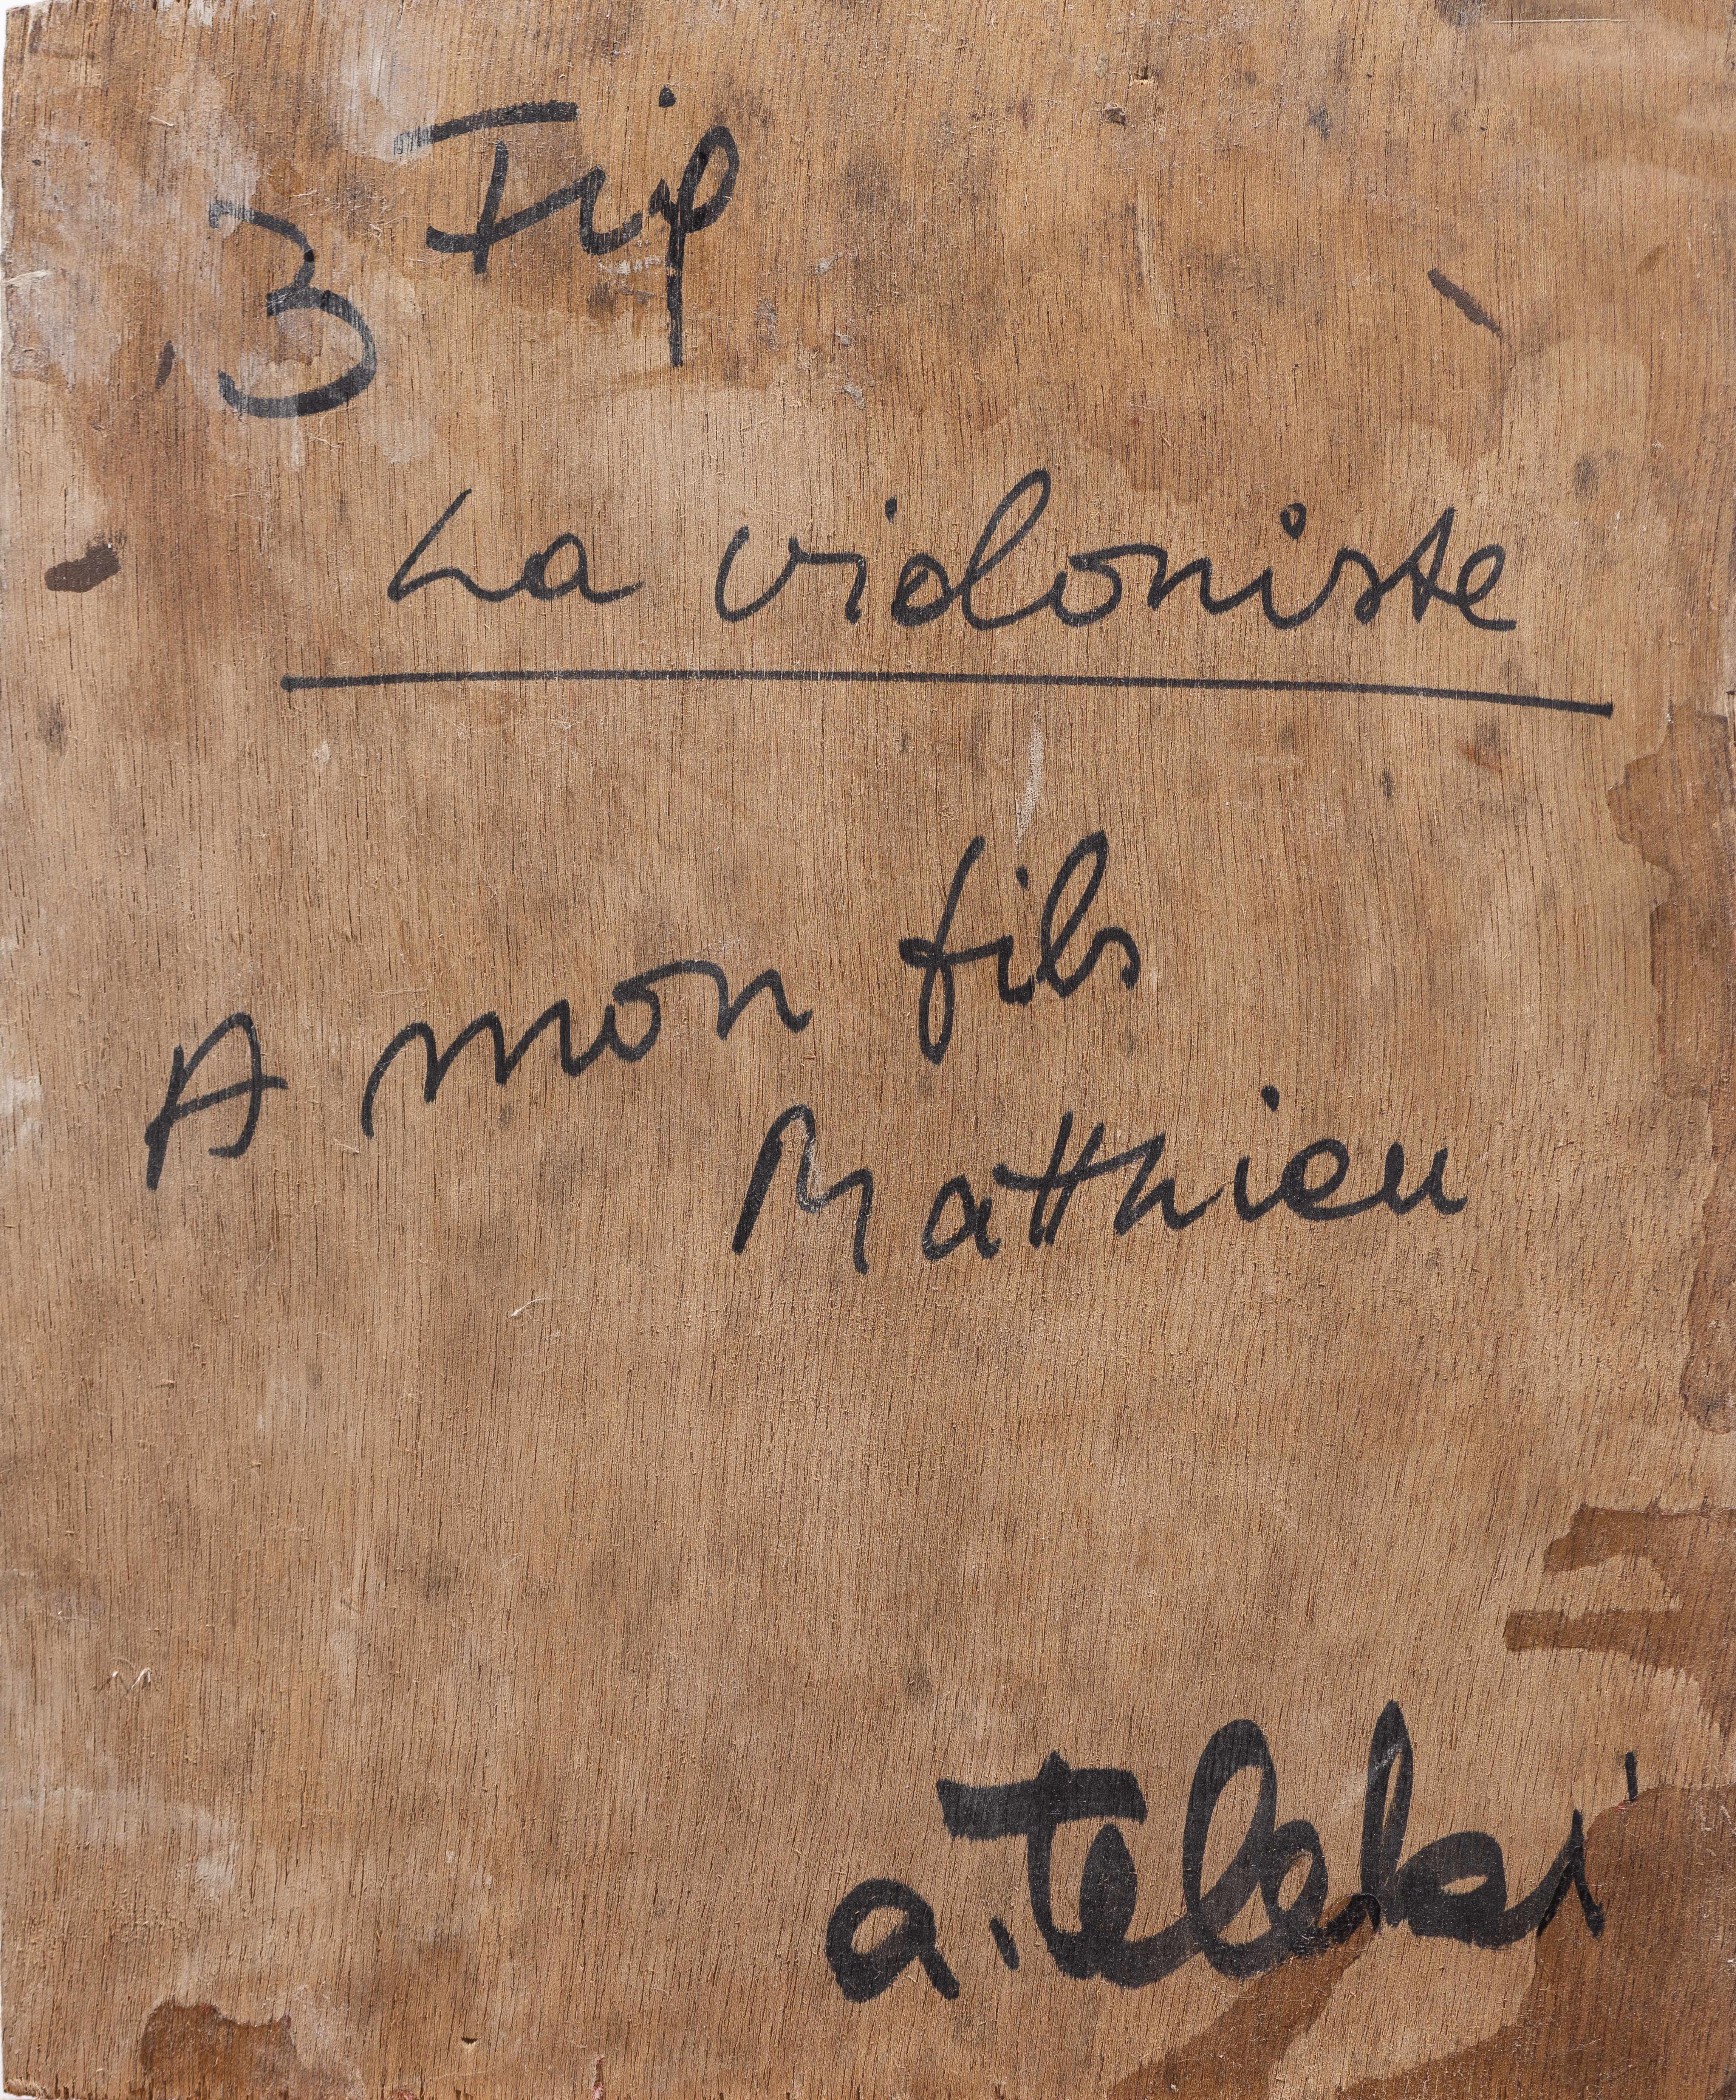 3 Fig
La violoniste
A mon fils
Matthieu
a. Teleki